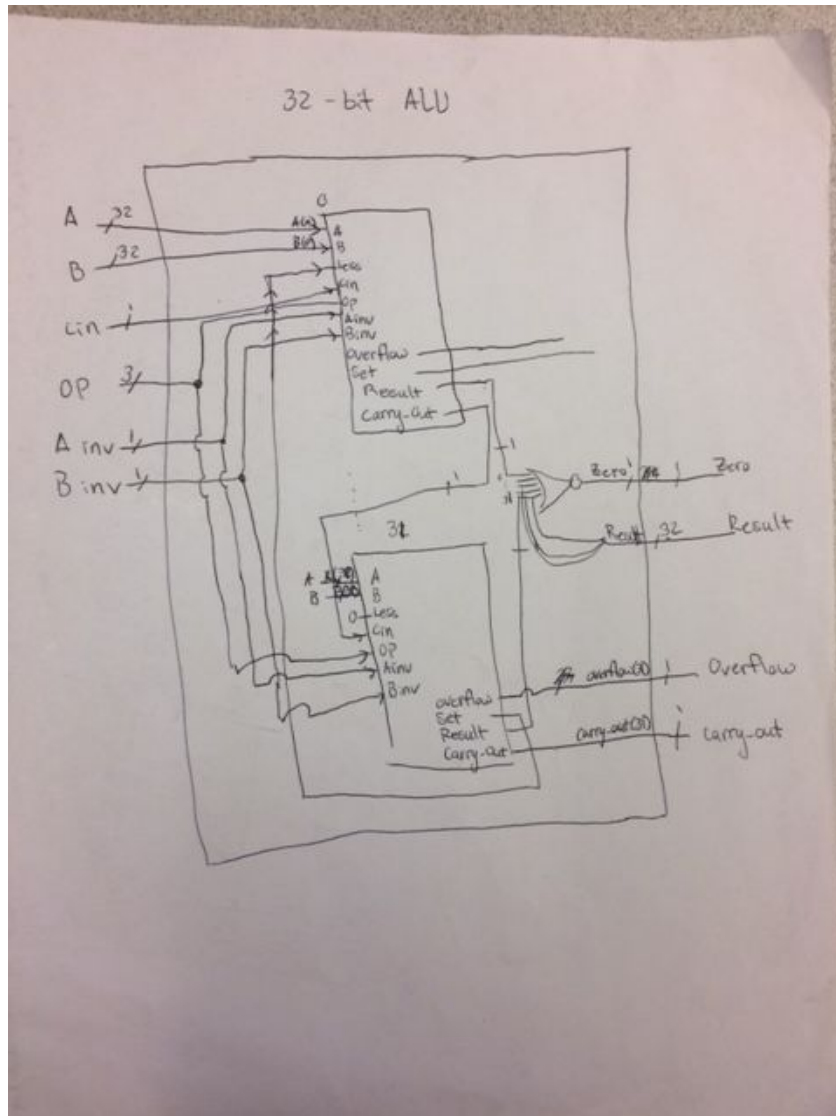 32-bit ALU
A 32
B 32
Cin 1
OP 3
A inv 1
B inv 1
0
A
B
Less
Cin
OP
Ainv
Binv
overflow
Set
Result
Carry-Out
1
1
Zero 1
1
Zero
Result 32
Result
31
A
B
A
B
0 Less
Cin
OP
Ainv
Binv
overflow
Set
Result
Carry-Out
overflow(31) 1
Overflow
carry-out(31) 1
Carry-out